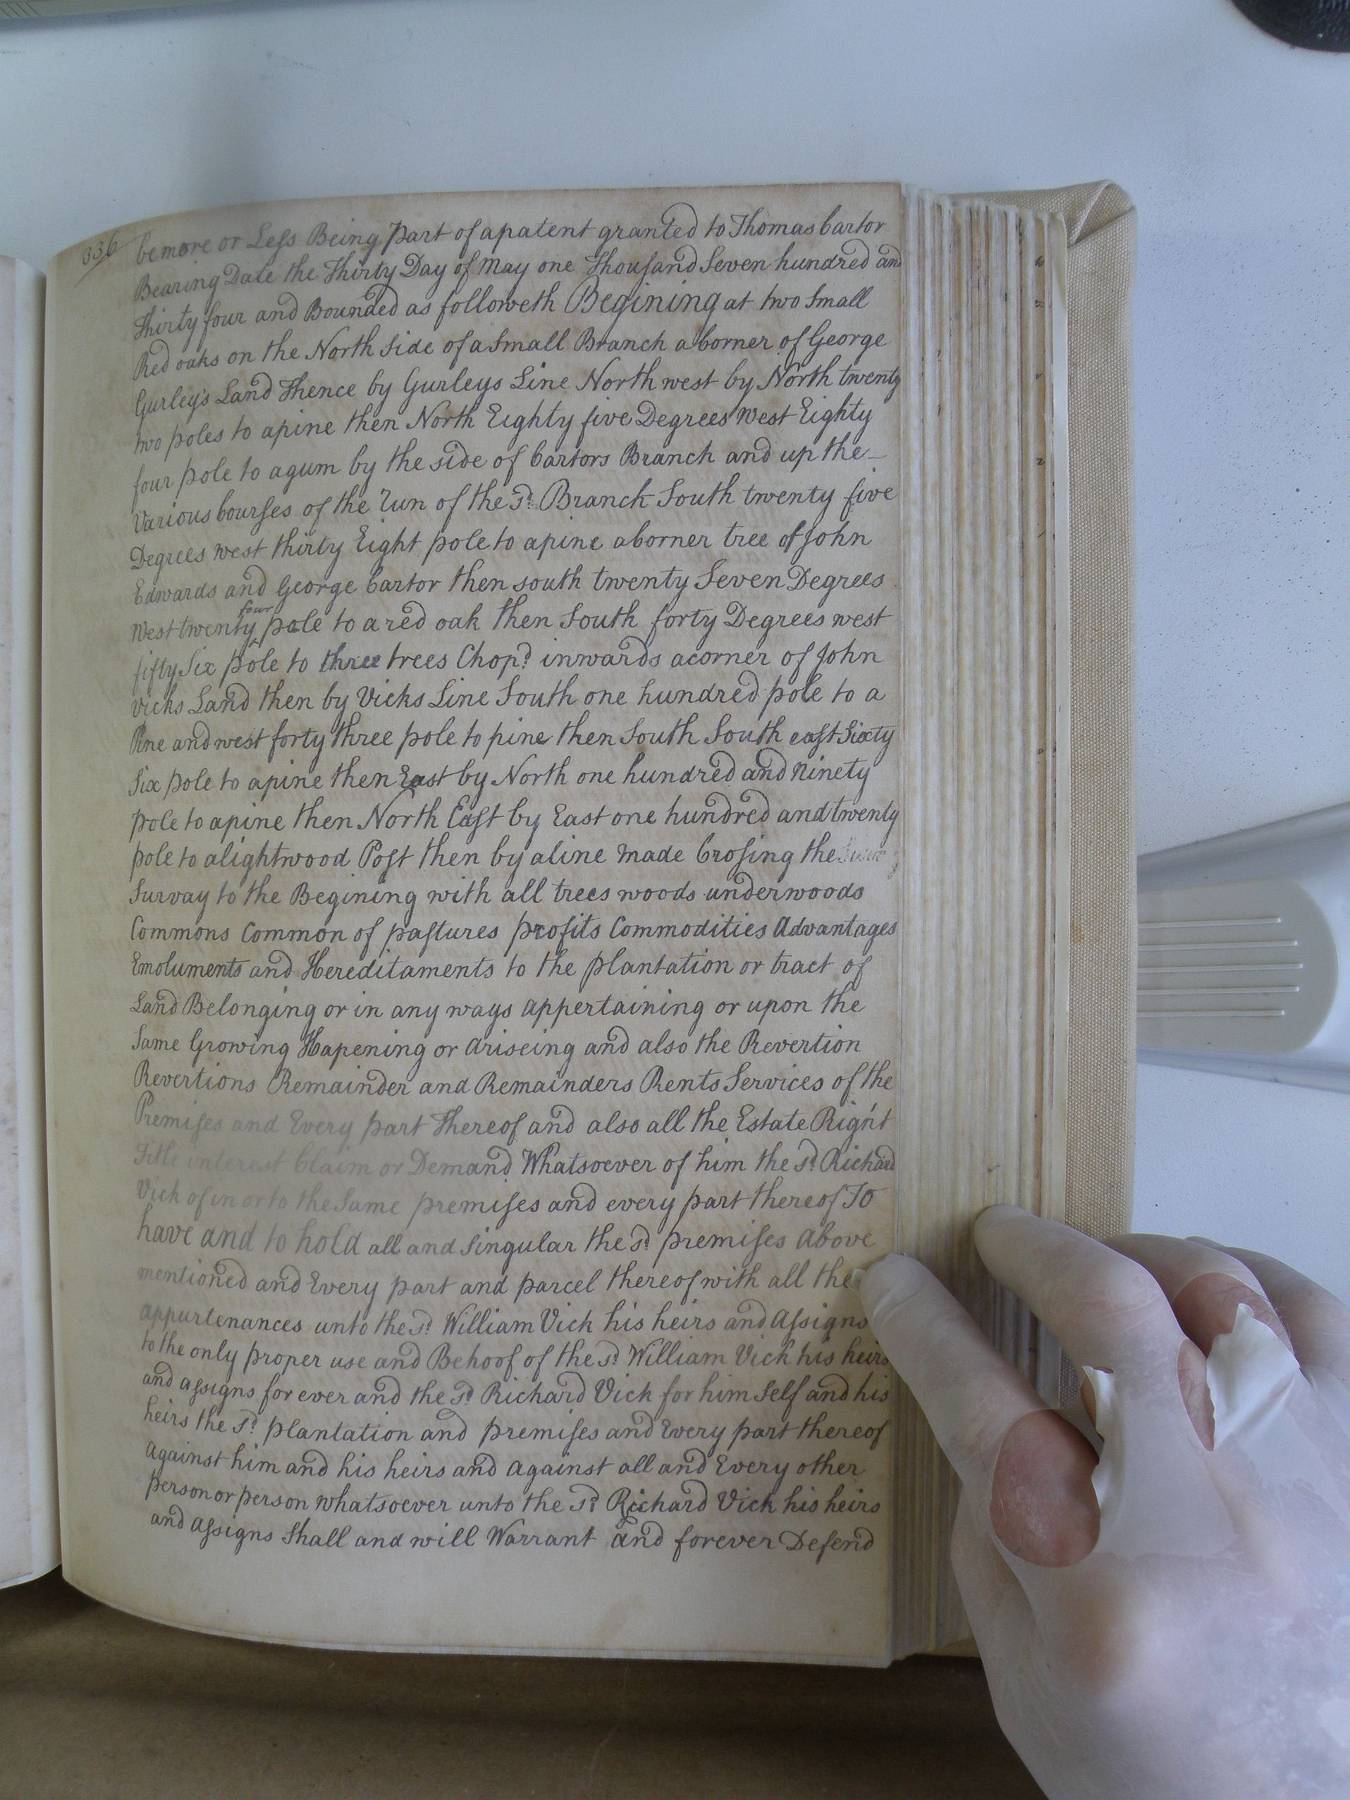 336
be more or Less Being part of a patent granted to Thomas Cartor
Bearing Date the Thirty Day of May one Thousand Seven hundred and
Thirty four and Bounded as followeth Begining at two Small
Red oaks on the North Side of a Small Branch a Corner of George
Gurley's Land Thence by Gurleys Line North west by North twenty
two poles to a pine then North Eighty five Degrees West Eighty
four pole to a gum by the side of Cartors Branch and up the
Various Courses of the Run of the sd. Branch South twenty five
Degrees west thirty Eight pole to a pine a Corner tree of John
Edwards and George Cartor then south twenty Seven Degrees
four
West twenty pole to a red oak then South forty Degrees west
fifty Six pole to three trees Chopd. inwards a corner of John
Vicks Land then by Vicks Line South one hundred pole to a
Pine and west forty three pole to pine then South South east Sixty
Six pole to a pine then East by North one hundred and Ninety
pole to a pine then North East by East one hundred and twenty
pole to a lightwood Post then by a line made Crosing the
Survay to the Begining with all trees woods underwoods
Commons Common of pastures profits Commodities Advantages
Emoluments and Hereditaments to the plantation or tract of
Land Belonging or in any ways appertaining or upon the
Same Growing Hapening or Ariseing and also the Revertion
Revertions Remainder and Remainders Rents Services of the
Premises and Every part Thereof and also all the Estate Right
Title interest Claim or Demand Whatsoever of him the sd. Richard
Vick of in or to the Same premises and every part thereof To
have and to hold all and Singular the sd. premises Above
mentioned and Every part and parcel thereof with all the
appurtenances unto the sd. William Vick his heirs and Assigns
to the only proper use and Behoof of the sd. William Vick his heirs
and assigns for ever and the sd. Richard Vick for him Self and his
heirs the sd. plantation and premises and Every part thereof
Against him and his heirs and Against all and Every other
person or person whatsoever unto the sd. Richard Vick his heirs
and Assigns Shall and will Warrant and forever Defend